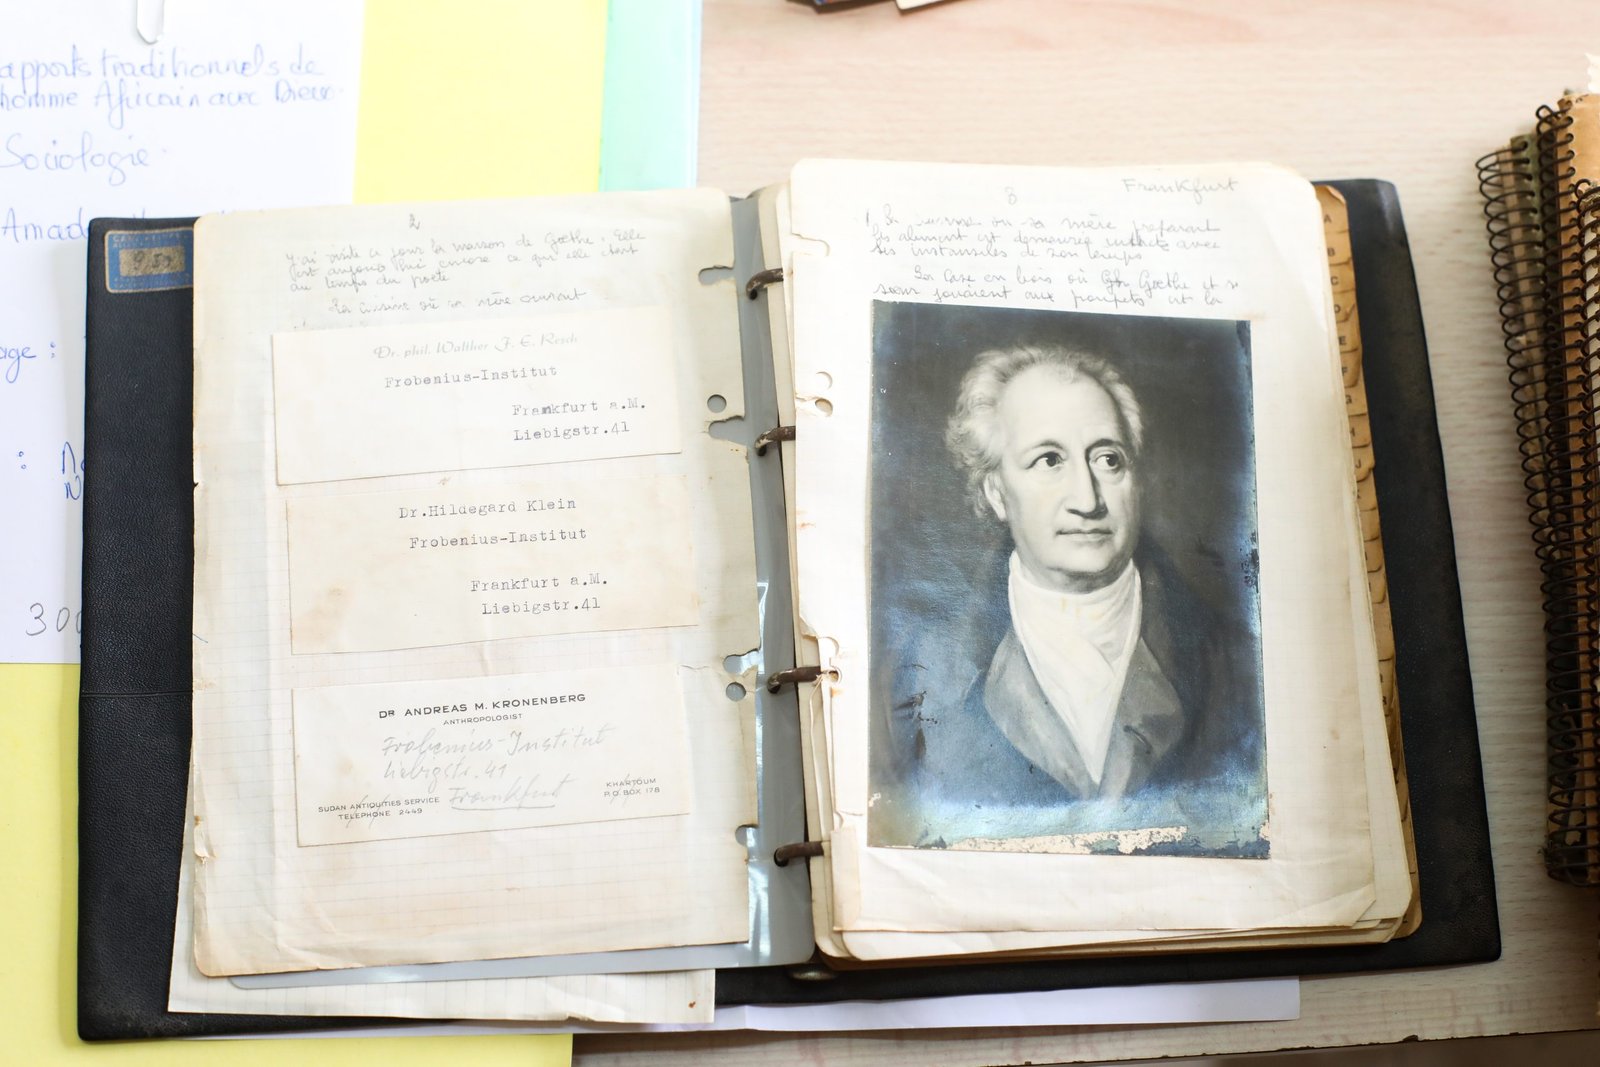 apports traditionnels de
homme Africain avec Dieu.
Sociologie.
Amad
age :
:
300
2
J'ai visité ce jour la maison de Goethe. Elle
est aujourd'hui encore ce qu'elle était
au temps du poète
La cuisine où sa mère
Dr. phil. Walther F. E. Resch
Frobenius-Institut
Frankfurt a.M.
Liebigstr.41
Dr.Hildegard Klein
Frobenius-Institut
Frankfurt a.M.
Liebigstr.41
DR ANDREAS M. KRONENBERG
ANTHROPOLOGIST
Frobenius-Institut
Liebigstr. 41
Frankfurt
SUDAN ANTIQUITIES SERVICE
TELEPHONE 2449
KHARTOUM
P.O.BOX 178
3
Frankfurt
où sa mère préparait
les aliments est demeurée intacte avec
ses ustensiles de son temps
en bois où Goethe et sa
soeur jouaient aux et la
A
B
C
D
E
F
G
H
J